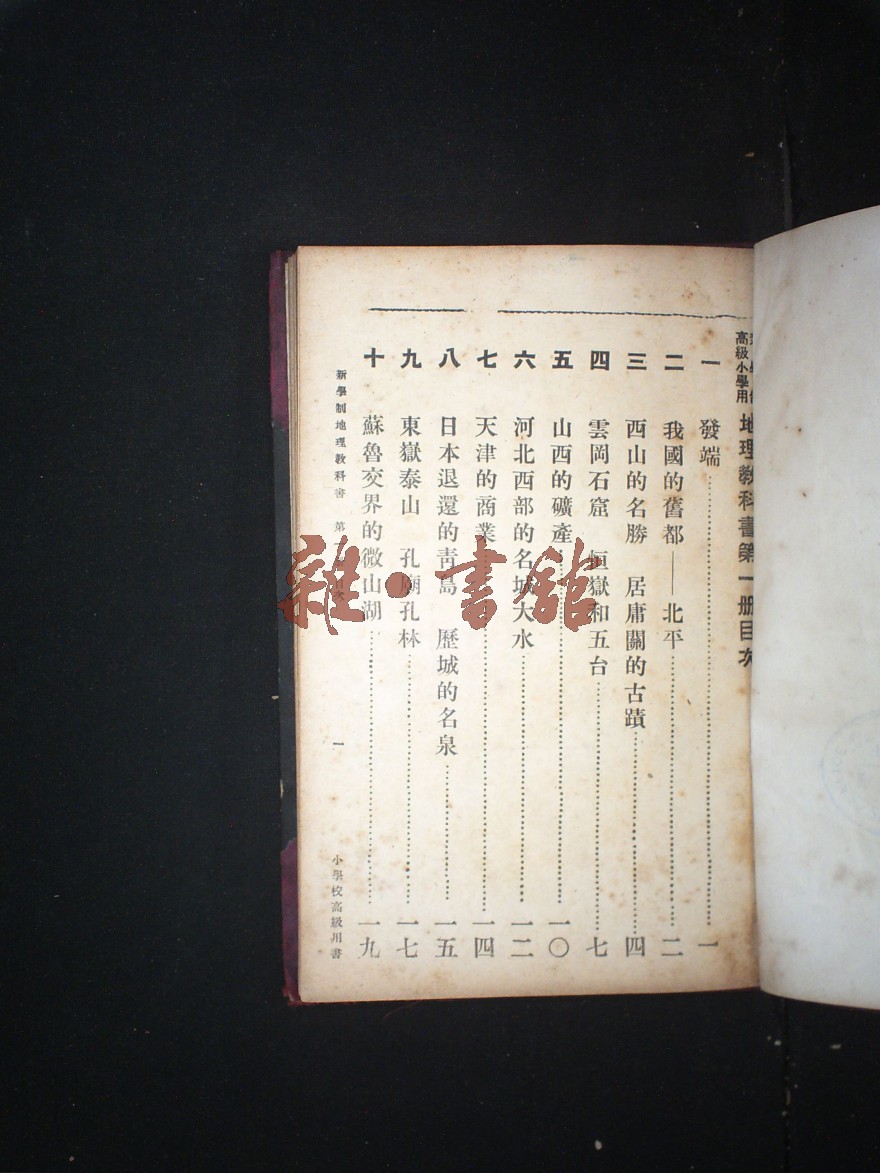 高級小學用
地理教科書第一册目次
一 發端 一
二 我國的舊都——北平 二
三 西山的名勝 居庸關的古蹟 四
四 雲岡石窟 恒嶽和五台 七
五 山西的礦產 一〇
六 河北西部的名城大水 一二
七 天津的商業 一四
八 日本退還的靑島 歷城的名泉 一五
九 東嶽泰山 孔廟孔林 一七
十 蘇魯交界的微山湖 一九
新學制地理教科書 第 目次 一 小學校高級用書
雜·書館